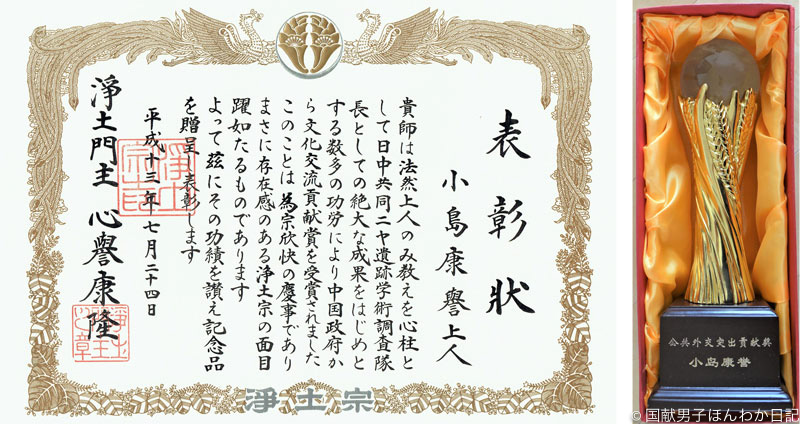 表彰状
小島康譽上人
貴師は法然上人のみ教えを心柱と
して日中共同ニヤ遺跡学術調査隊
長としての絶大な成果をはじめと
する数多の功労により中国政府か
ら文化交流貢献賞を受賞されました
このことは為宗欣快の慶事であり
まさに存在感のある浄土宗の面目
躍如たるものであります
よって茲にその功績を讃え記念品
を贈呈し表彰します
平成十三年七月二十四日
淨土門主 心譽康隆
淨土宗
公共外交突出贡献奖
小岛康誉
© 国献男子ほんわか日記